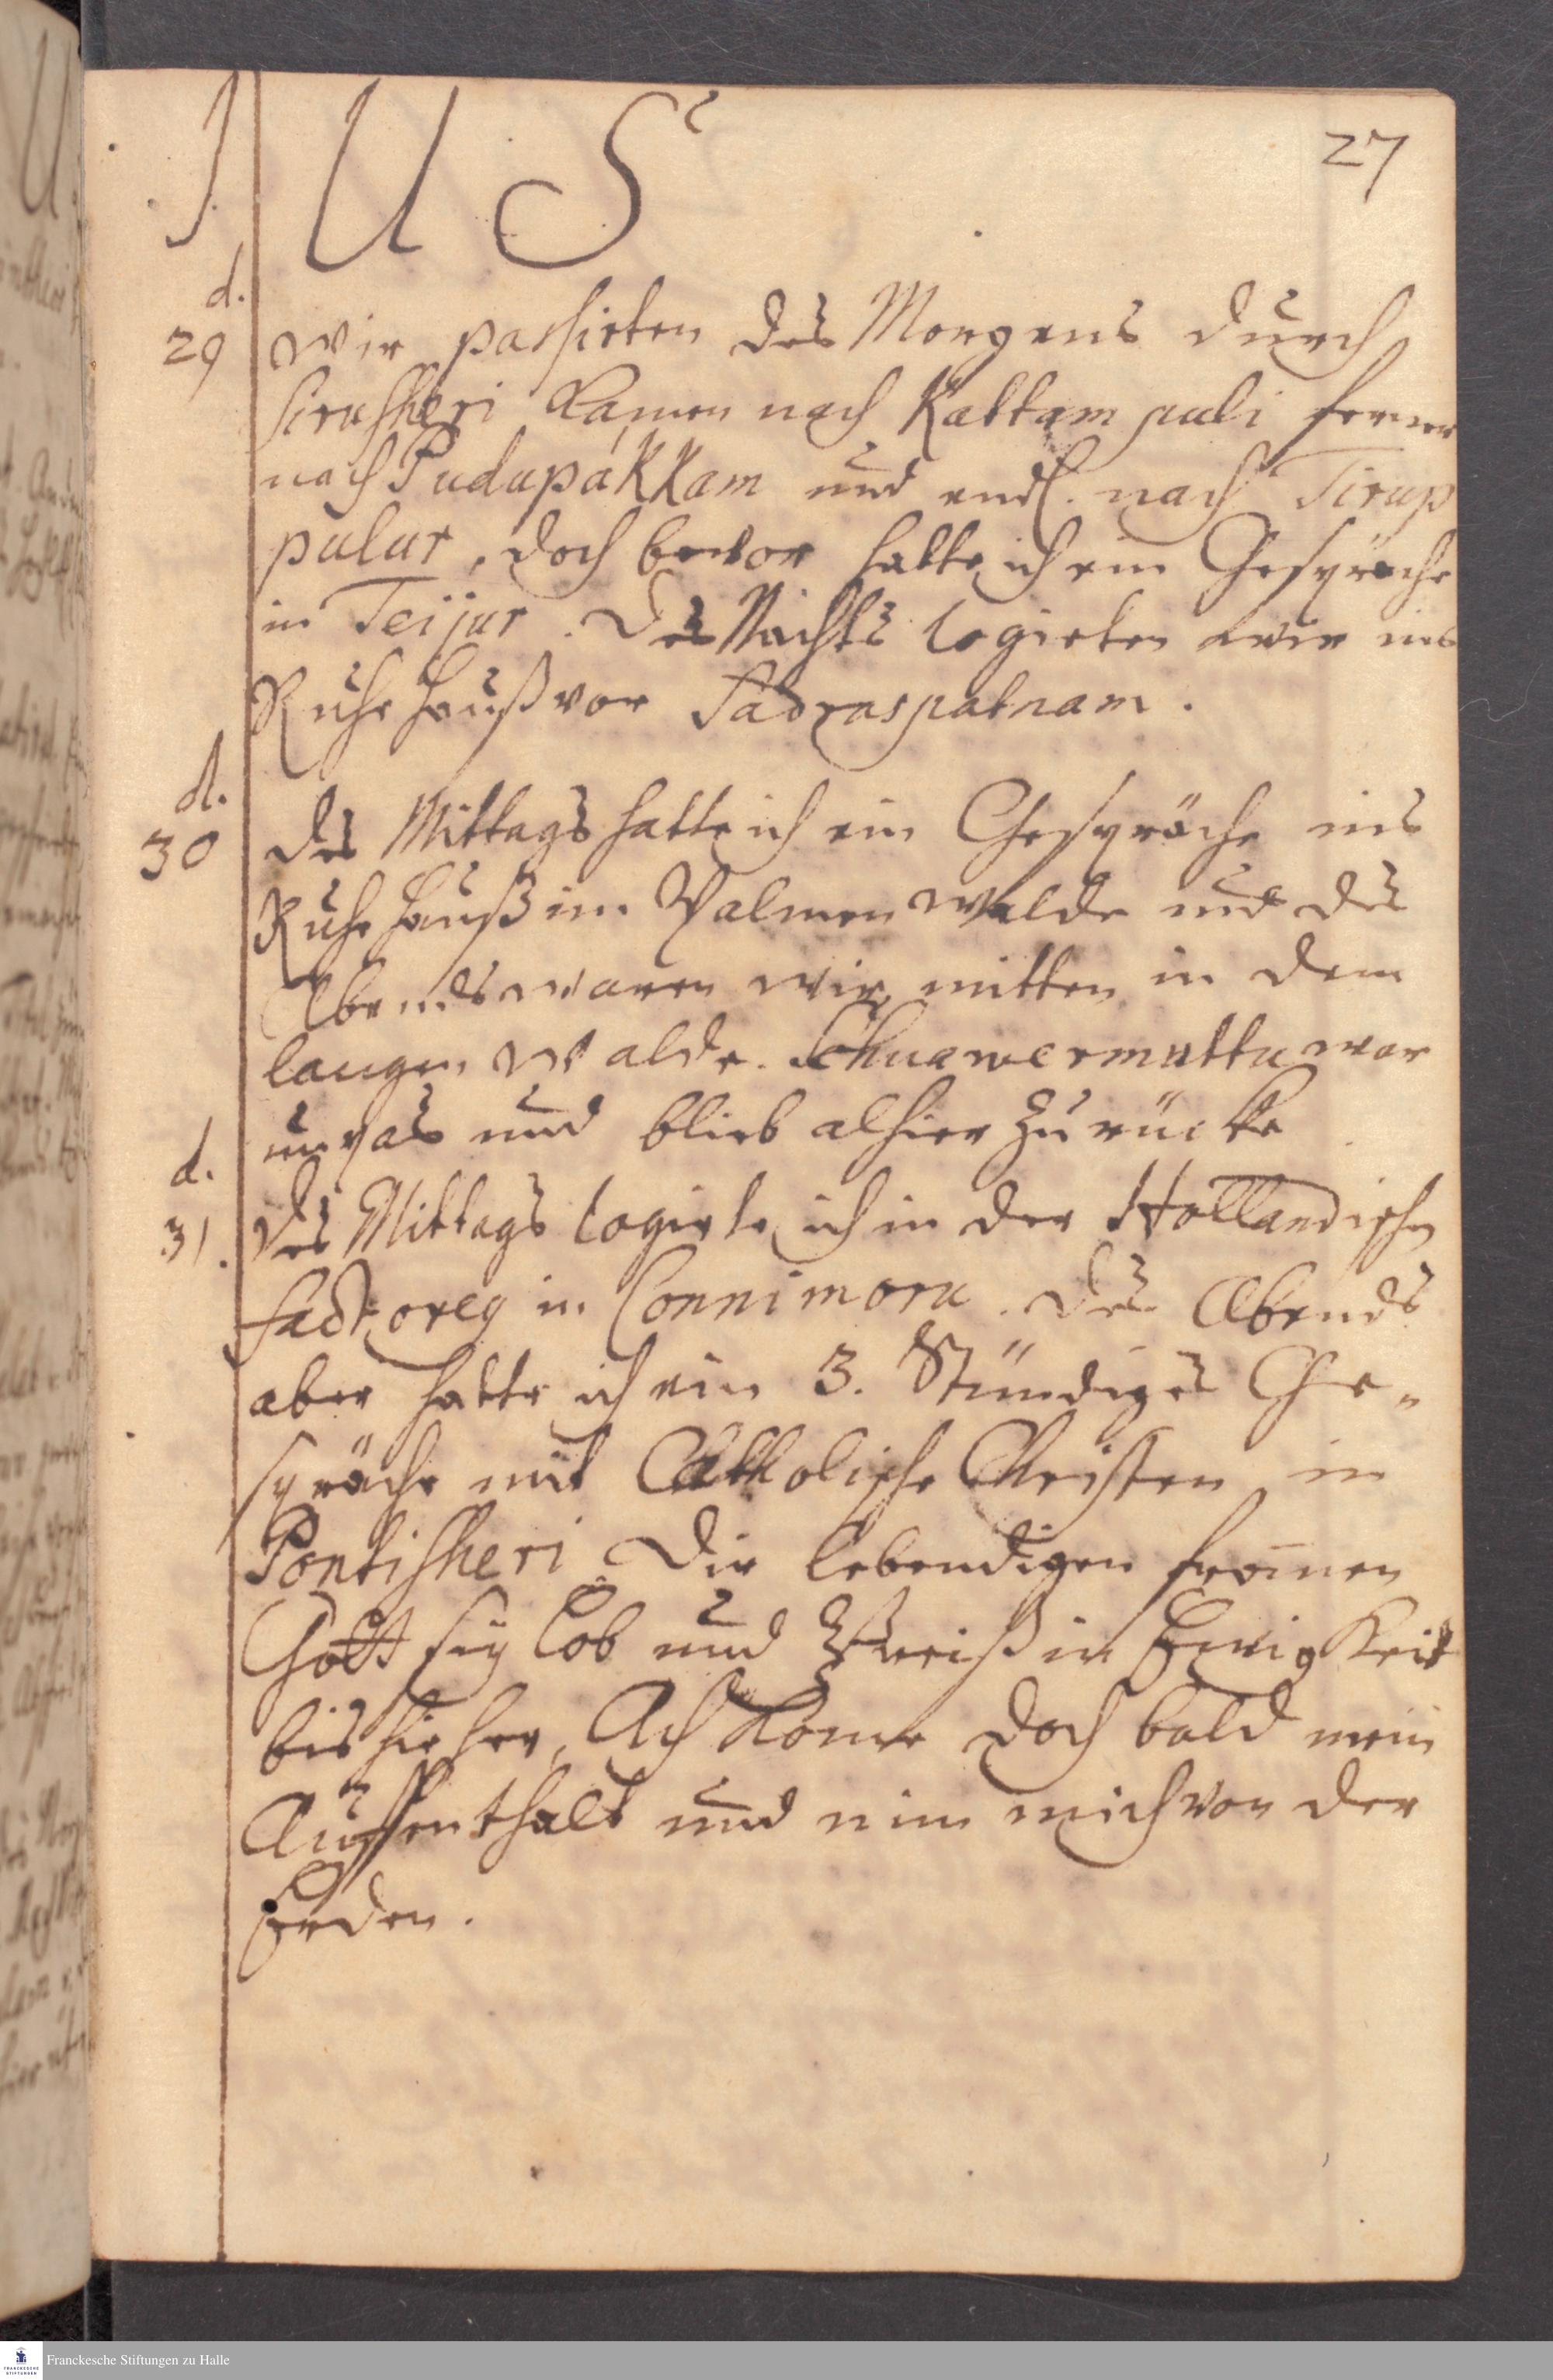 27
J U S
d.
29 wir passirten des Morgens durch
Siruscheri kamen nach Kattampuli ferner
nach Pudupákkam und endl. nach Tirup
palur, doch bevor hatte ich ein Gespräche
in Teijur. Des Nachts logirten wir ins
Ruhe Hauß vor Sadraspatnam.
d.
30 des Mittags hatte ich ein Gespräche ins
Ruhe Hauß im Palmen walde und des
Abends waren wir mitten in dem
langen Walde. war
und blieb alhier zurücke
d.
31. des Mittags logirte ich in der Hollandischen
factorey in Connimora. Des Abends
aber hatte ich ein 3. Stündiges Ge-
spräche mit Catholische Christen in
Pontischeri. Dir lebendigen frommen
Gott sey Lob und Preiß in Ewigkeit
bis hieher, Ach kome doch bald mein
Auffenthalt und nim mich von der
Erden.
Franckesche Stiftungen zu Halle